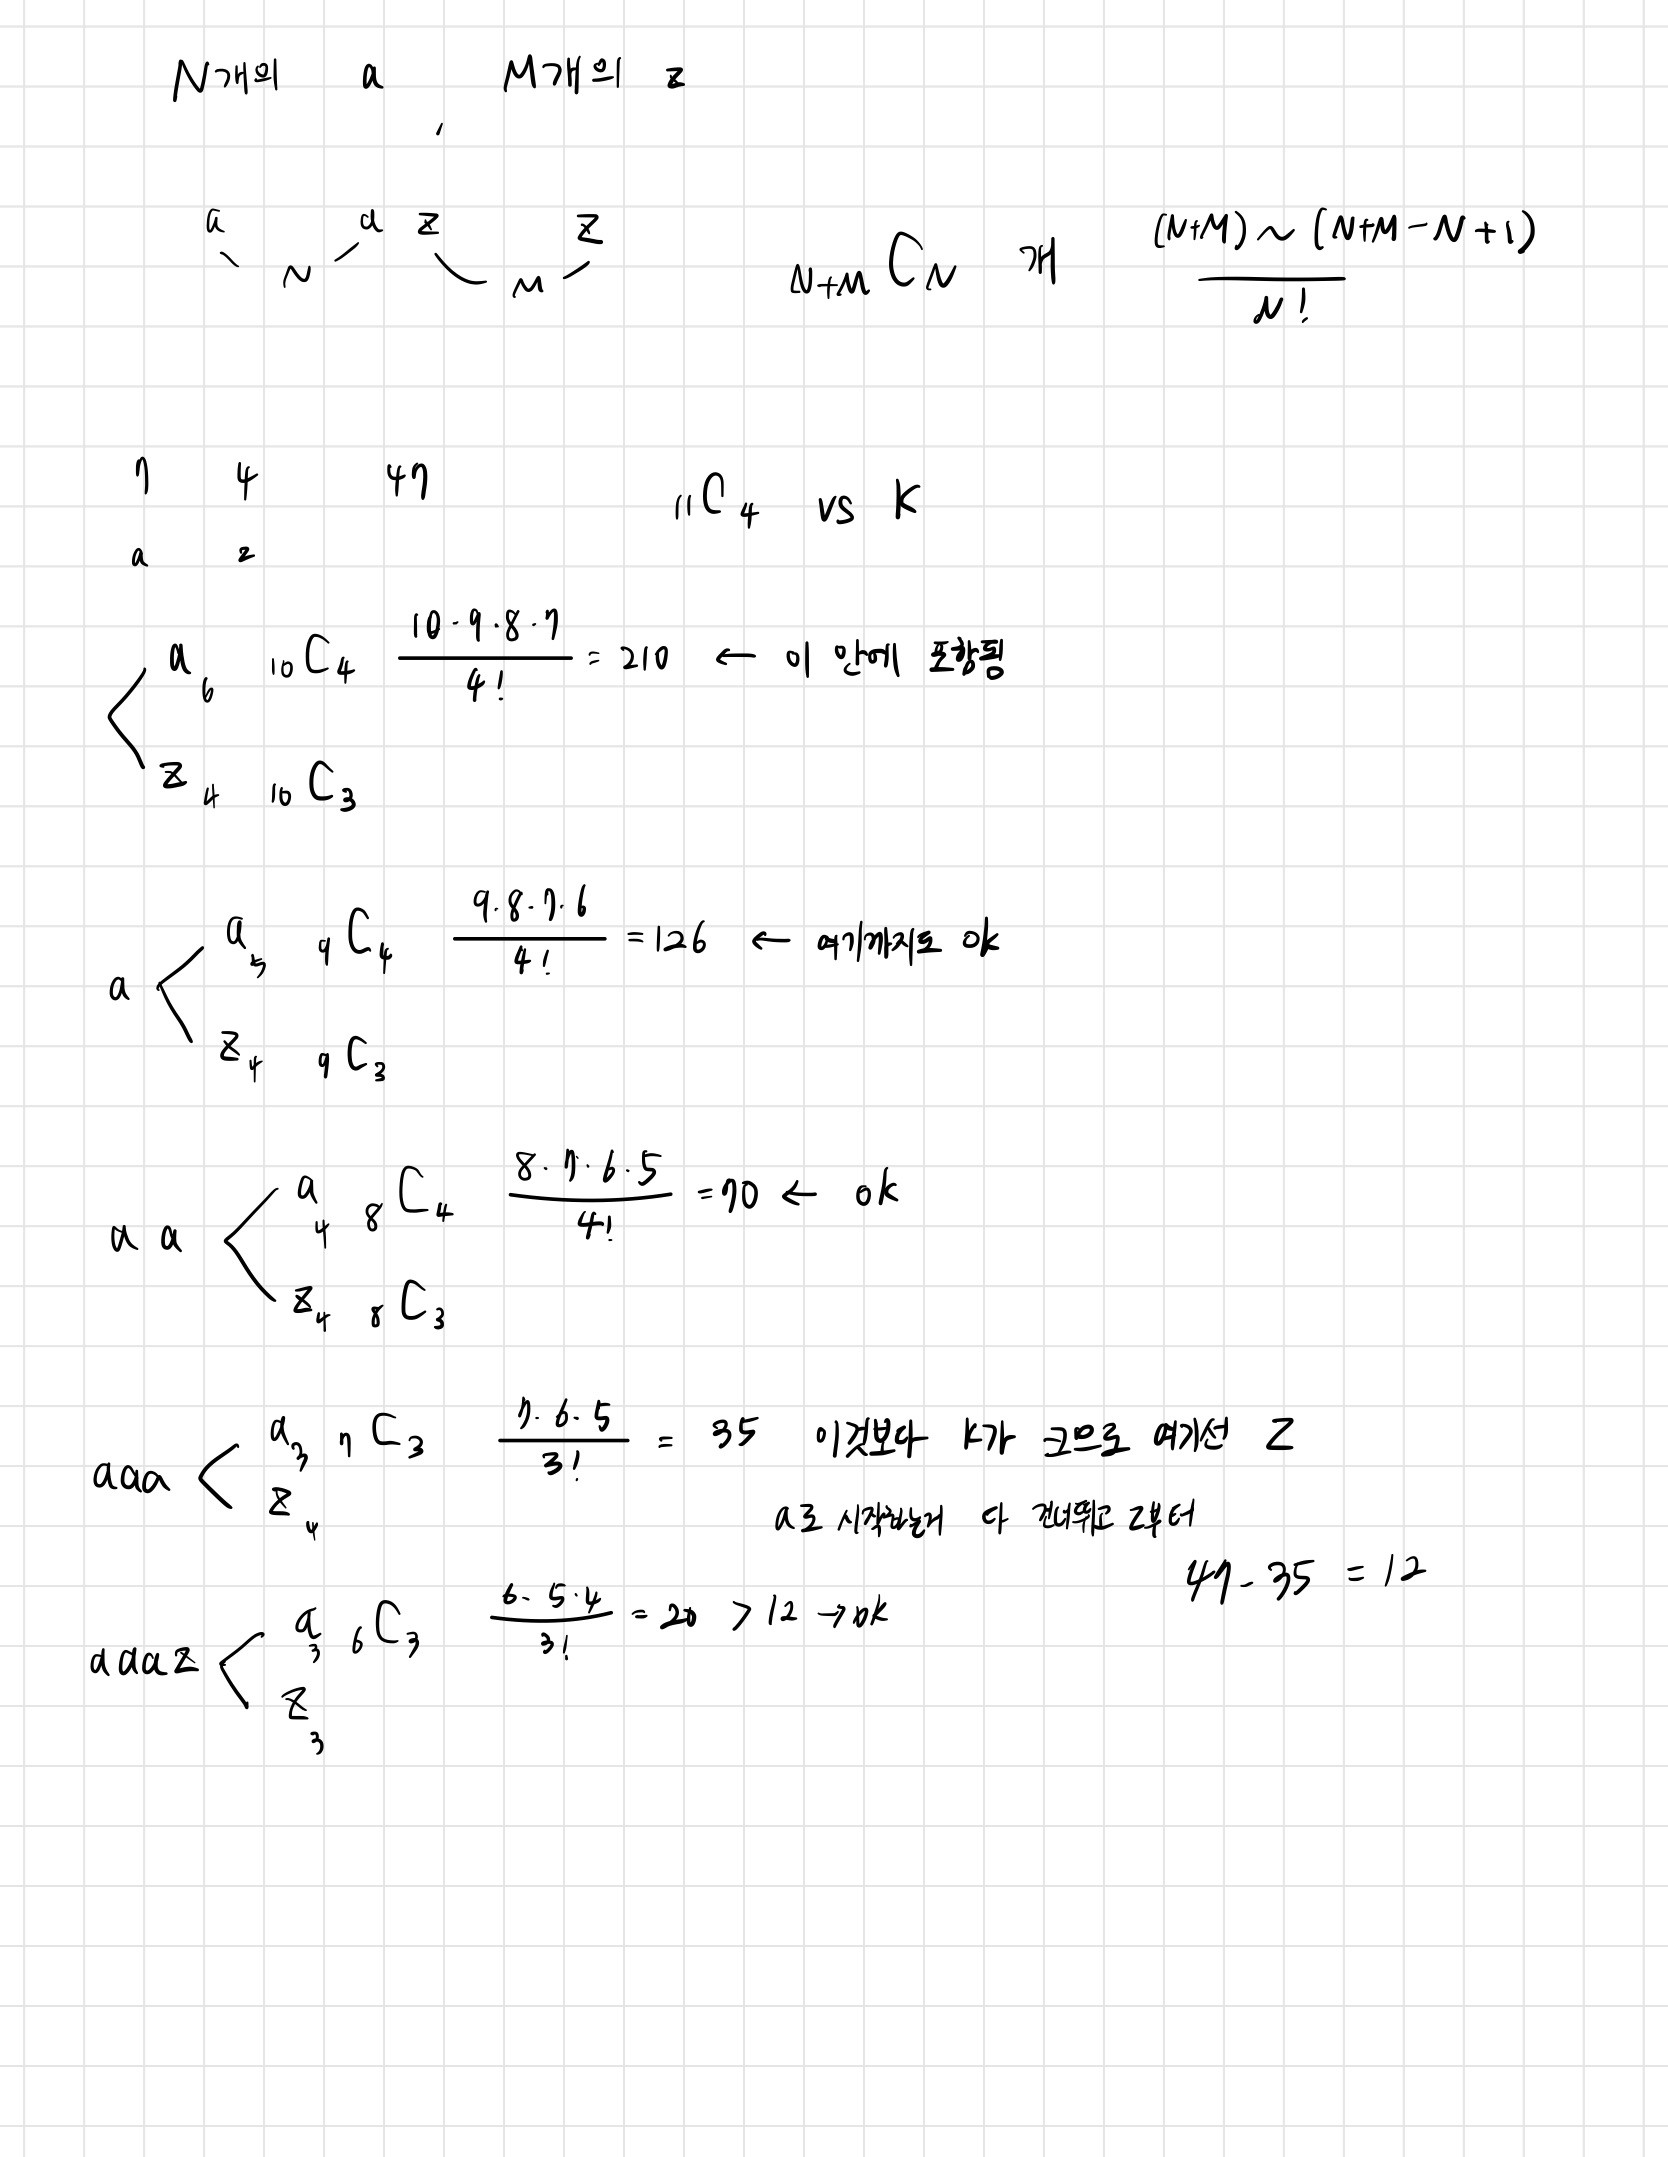 N개의 a M개의 z
a a z z
N M
N+M C N 개 (N+M) ~ (N+M-N+1) / N!
7 4 47 11C4 vs K
a z
a 6 10C4 10·9·8·7 / 4! = 210 ← 이 안에 포함됨
z 4 10C3
a a 5 9C4 9·8·7·6 / 4! = 126 ← 여기까지도 ok
z 4 9C3
a a a 4 8C4 8·7·6·5 / 4! = 70 ← ok
z 4 8C3
aaa a 3 7C3 7·6·5 / 3! = 35 이것보다 K가 크므로 여기선 Z
z 4
a로 시작하는거 다 건너뛰고 z부터
47-35 = 12
aaaz a 3 6C3 6·5·4 / 3! = 20 > 12 → ok
z 3